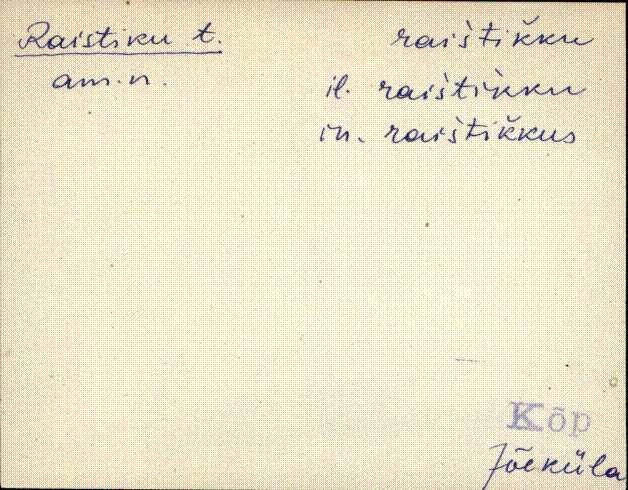 Raistiku t. raištikku
am.n. il. raištikku
in. raištikkus
Kõp
Jõeküla